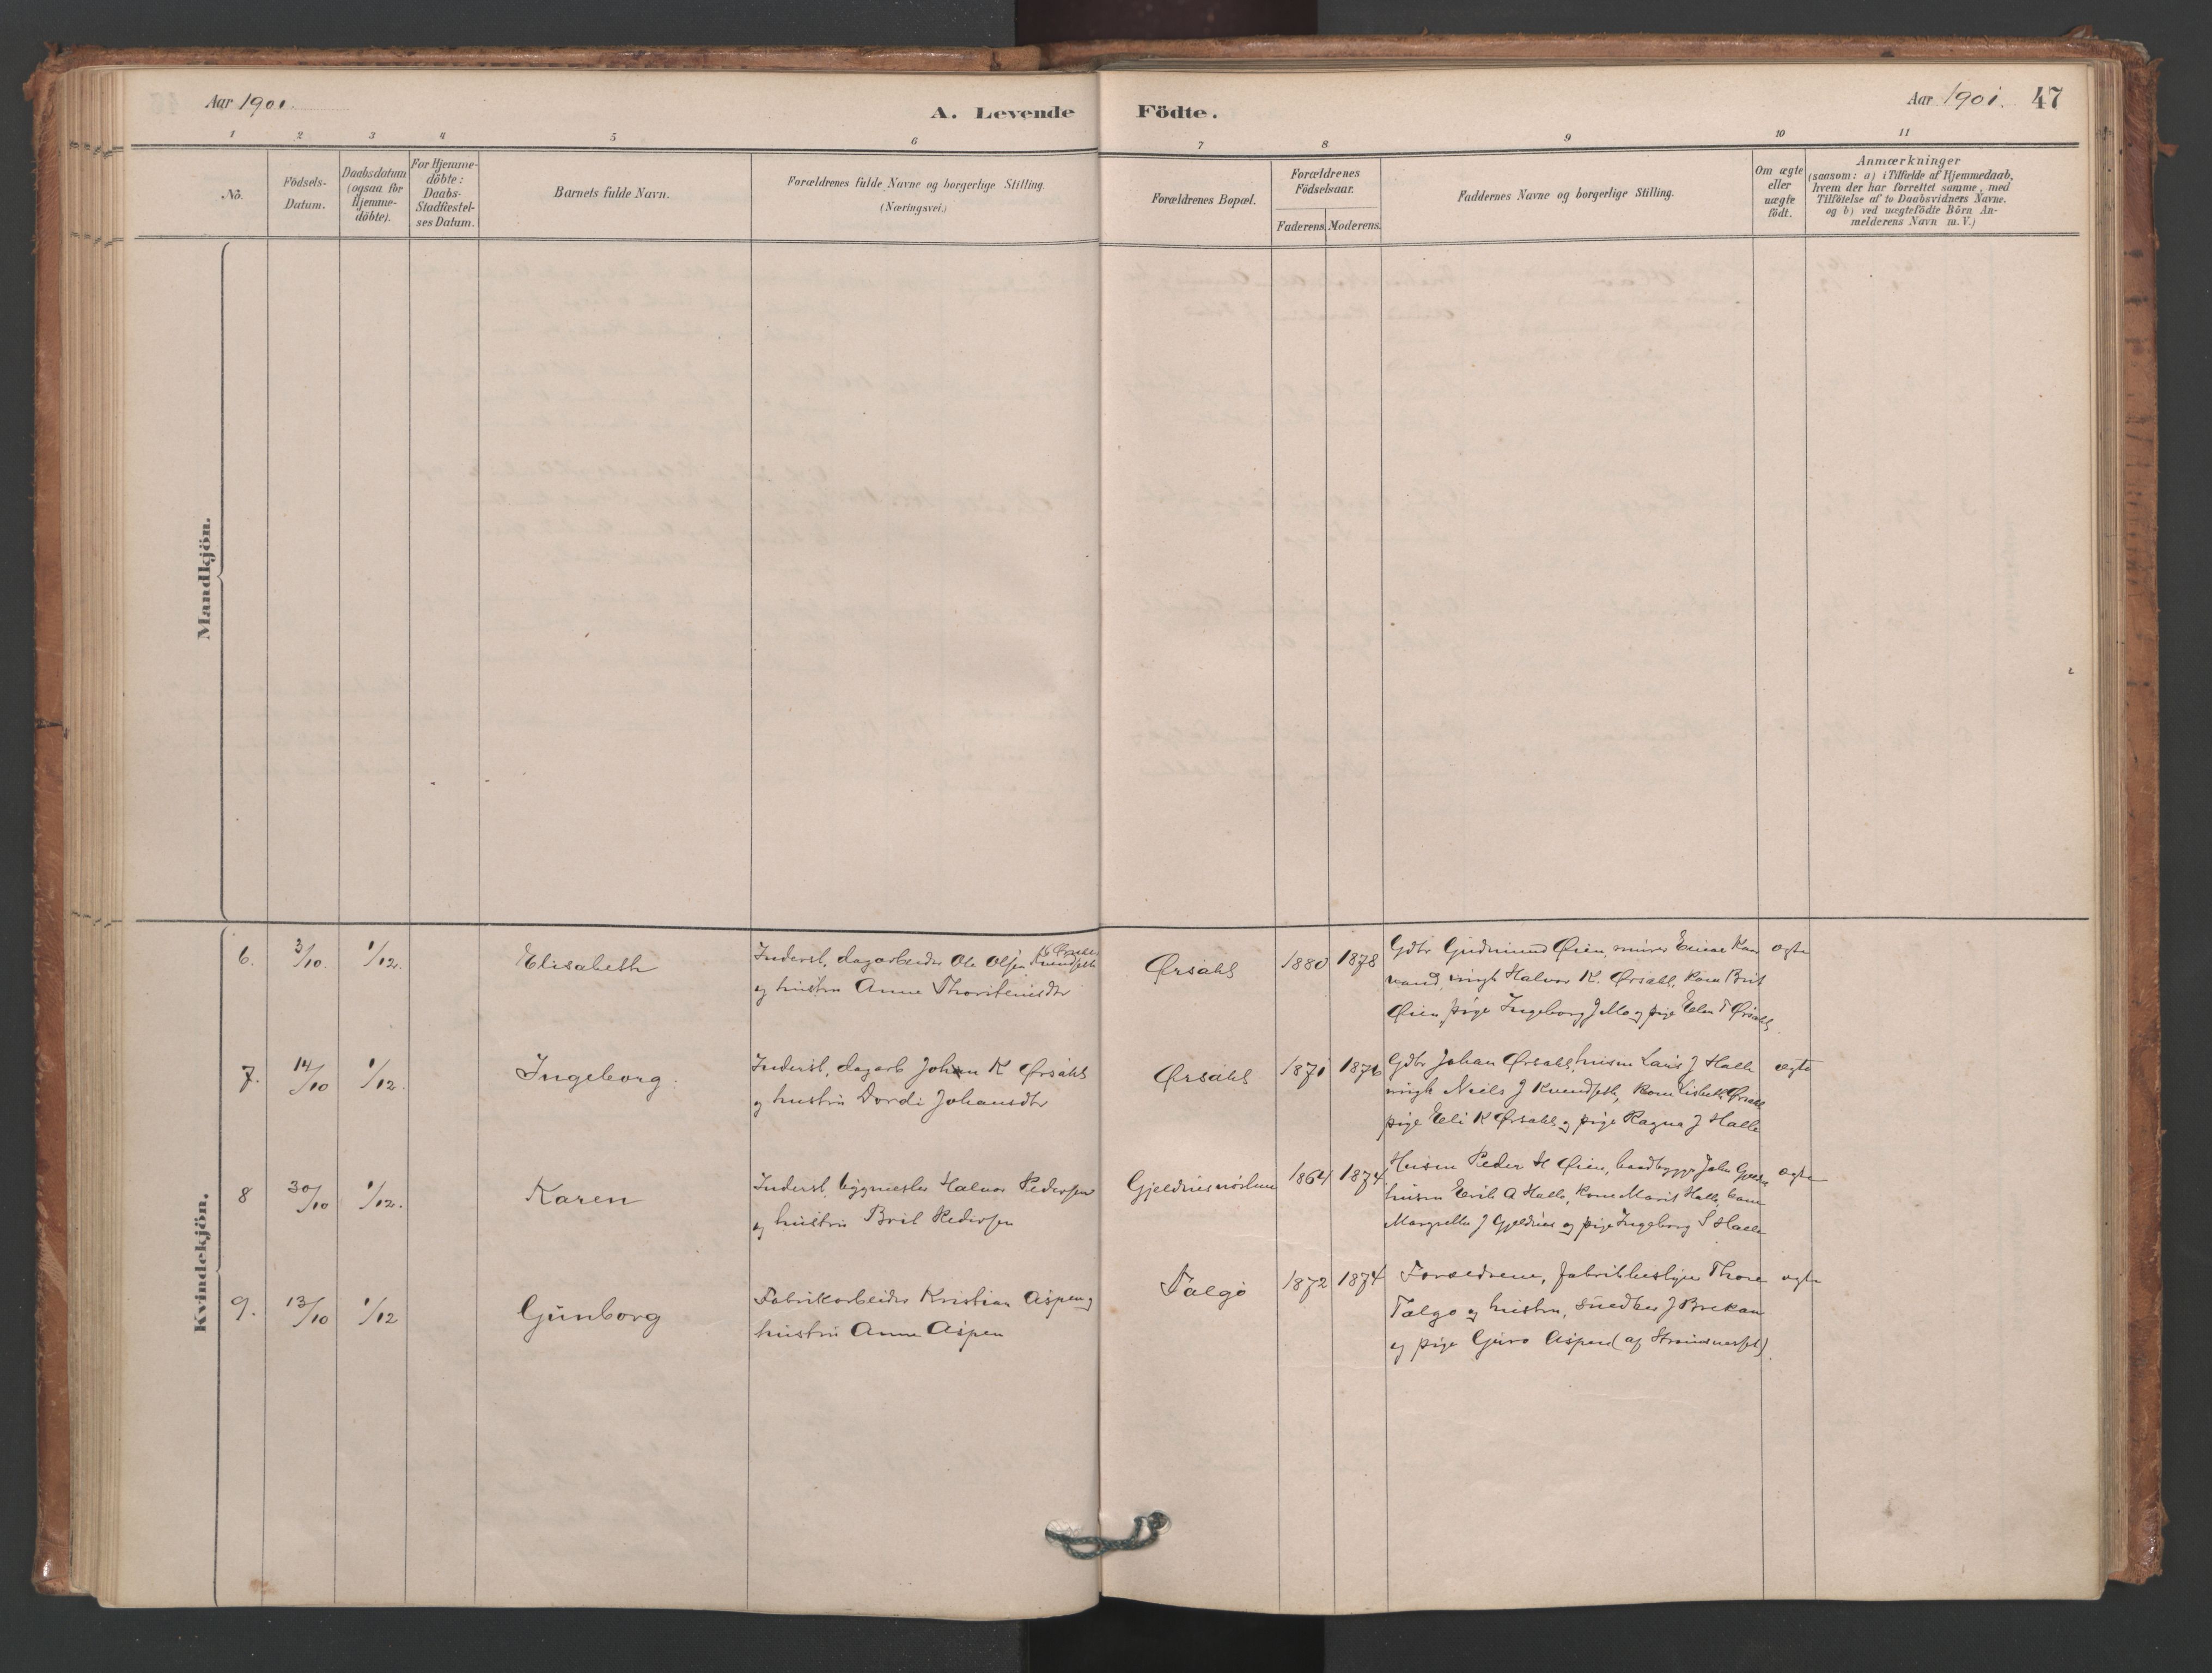 Aar 1901.
A. Levende Födte.
Aar 1901. 47
1 2 3 4 5 6 7 8 9 10 11
No.
Födsels-
Datum.
Daabsdatum
(ogsaa for
Hjemme-
döbte).
For Hjemme-
döbte:
Daabs-
Stadfæstel-
ses Datum.
Barnets fulde Navn.
Forældrenes fulde Navne og borgerlige Stilling.
(Næringsvei.)
Forældrenes Bopæl.
Forældrenes
Födselsaar.
Faderens. Moderens.
Faddernes Navne og borgerlige Stilling.
Om ægte
eller
uægte
födt.
Anmærkninger
(saasom: a) i Tilfælde af Hjemmedaab,
hvem der har forrettet samme, med
Tilföielse af to Daabsvidners Navne.
og b) ved uægtefödte Börn An-
melderens Navn m. V.)
Mandkjön.
Kvindekjön.
6. 3/10. 1/12. Elisabeth
Inderst, dagarbeider Ole Olsen Kvendseth
og hustru Anne Thorsteinsdtr
Ørsahl 1880 1878
Gdbr Gudmund Øien, murer Einar
vand, ungk Halvor K. Ørsahl, kone Brit
Øien pige Ingeborg J Mo og pige Elen T Ørsahl.
ægte
7. 14/10 1/12. Ingeborg.
Inderst, dagarb Johan K Ørsahl
og hustru Dordi Johansdtr
Ørsahl 1871 1876
Gdbr Johan Ørsahl, husm Lars J Halle
ungk Neils J Kvendseth, kone Lisbeth Ørsahl
pige Eli K Ørsahl og pige Ragna J Halle
ægte
8 30/10 1/12. Karen
Inderst bygmester Halvor Pedersen
og hustru Brit Pedersen
Gjeldnesmörhun 1864 1874
Husm Peder H Øien, baadbygger John
husm Erik A Halle, kone Marit Halle, kone
Margrethe J Gjeldnes og pige Ingeborg S Halle
ægte
9. 13/10 1/12 Gunborg
Fabrikarbeider Kristian Aspen og
hustru Anne Aspen
Talgö 1872 1874
Forældrene, fabrikbestyrer Thore
Talgø og hustru, snedker J Brekan
og pige Guro Aspen (af Strandsnesset).
ægte